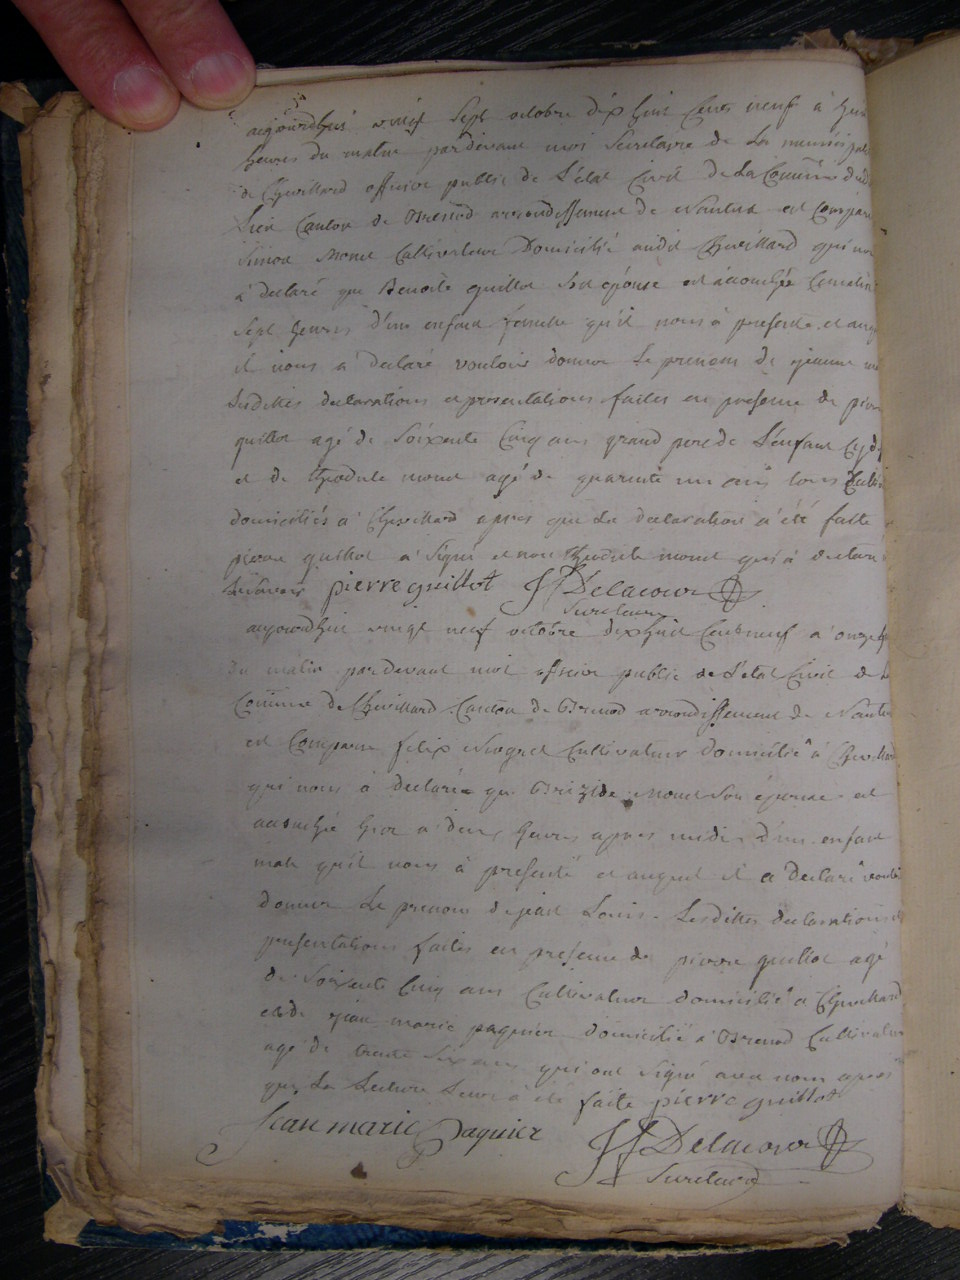 aujourdhui vingt Sept octobre dix huit Cent neuf à huit
heures du matin pardevant moi Secretaire de La municipal
de Chevillard officier public de L'état Civil de La Comune dud
Lieu Canton de Brenod arrondissement de Nantua est Comparu
Simon Monet Cultivateur Domicilié audit Chevillard qui nous
à declaré que Benoite guillot Son épouse est accouchée Cematin
Sept heures d'un enfant femelle qu'il nous à présenté et auq
il nous a declaré vouloir donner Le prenom de jeanne
Lesdittes declarations et présentations faites en presence de pierre
guillot agé de Soixente Cinq ans grand pere de L'enfant
et de théodule monet agé de quarente un ans tous Culti
domiciliés à Chevillard apres que La declaration a été faite
pierre guillot a Signé et non théodule monet qui à declaré
pierre guillot JJ Delacour
Secretaire
aujourdhui vingt neuf octobre dixhuit Cent neuf à onze
du matin pardevant moi officier public de L'état Civil de
Comune de Chevillard Canton de Brenod arrondissement de Nantu
est Comparu felix Niogret Cultivateur domicilié à Chevillard
qui nous à declaré que Brizide Monet Son épouse est
accouchée hier à deux heures apres midi d'un enfant
male qu'il nous à présenté et auquel il a declaré vouloir
donner Le prenom de jean Louis. Lesdittes declarations et
présentations faites en presence de pierre guillot agé
de Soixente Cinq ans Cultivateur domicilié à Chevillard
et de jean marie paquier domicilié à Brenod Cultivateur
agé de trente Six ans qui ont Signé avec nous après
que La Lecture Leur à été faite pierre guillot
Jean marie Paquier JJ Delacour
Secretaire